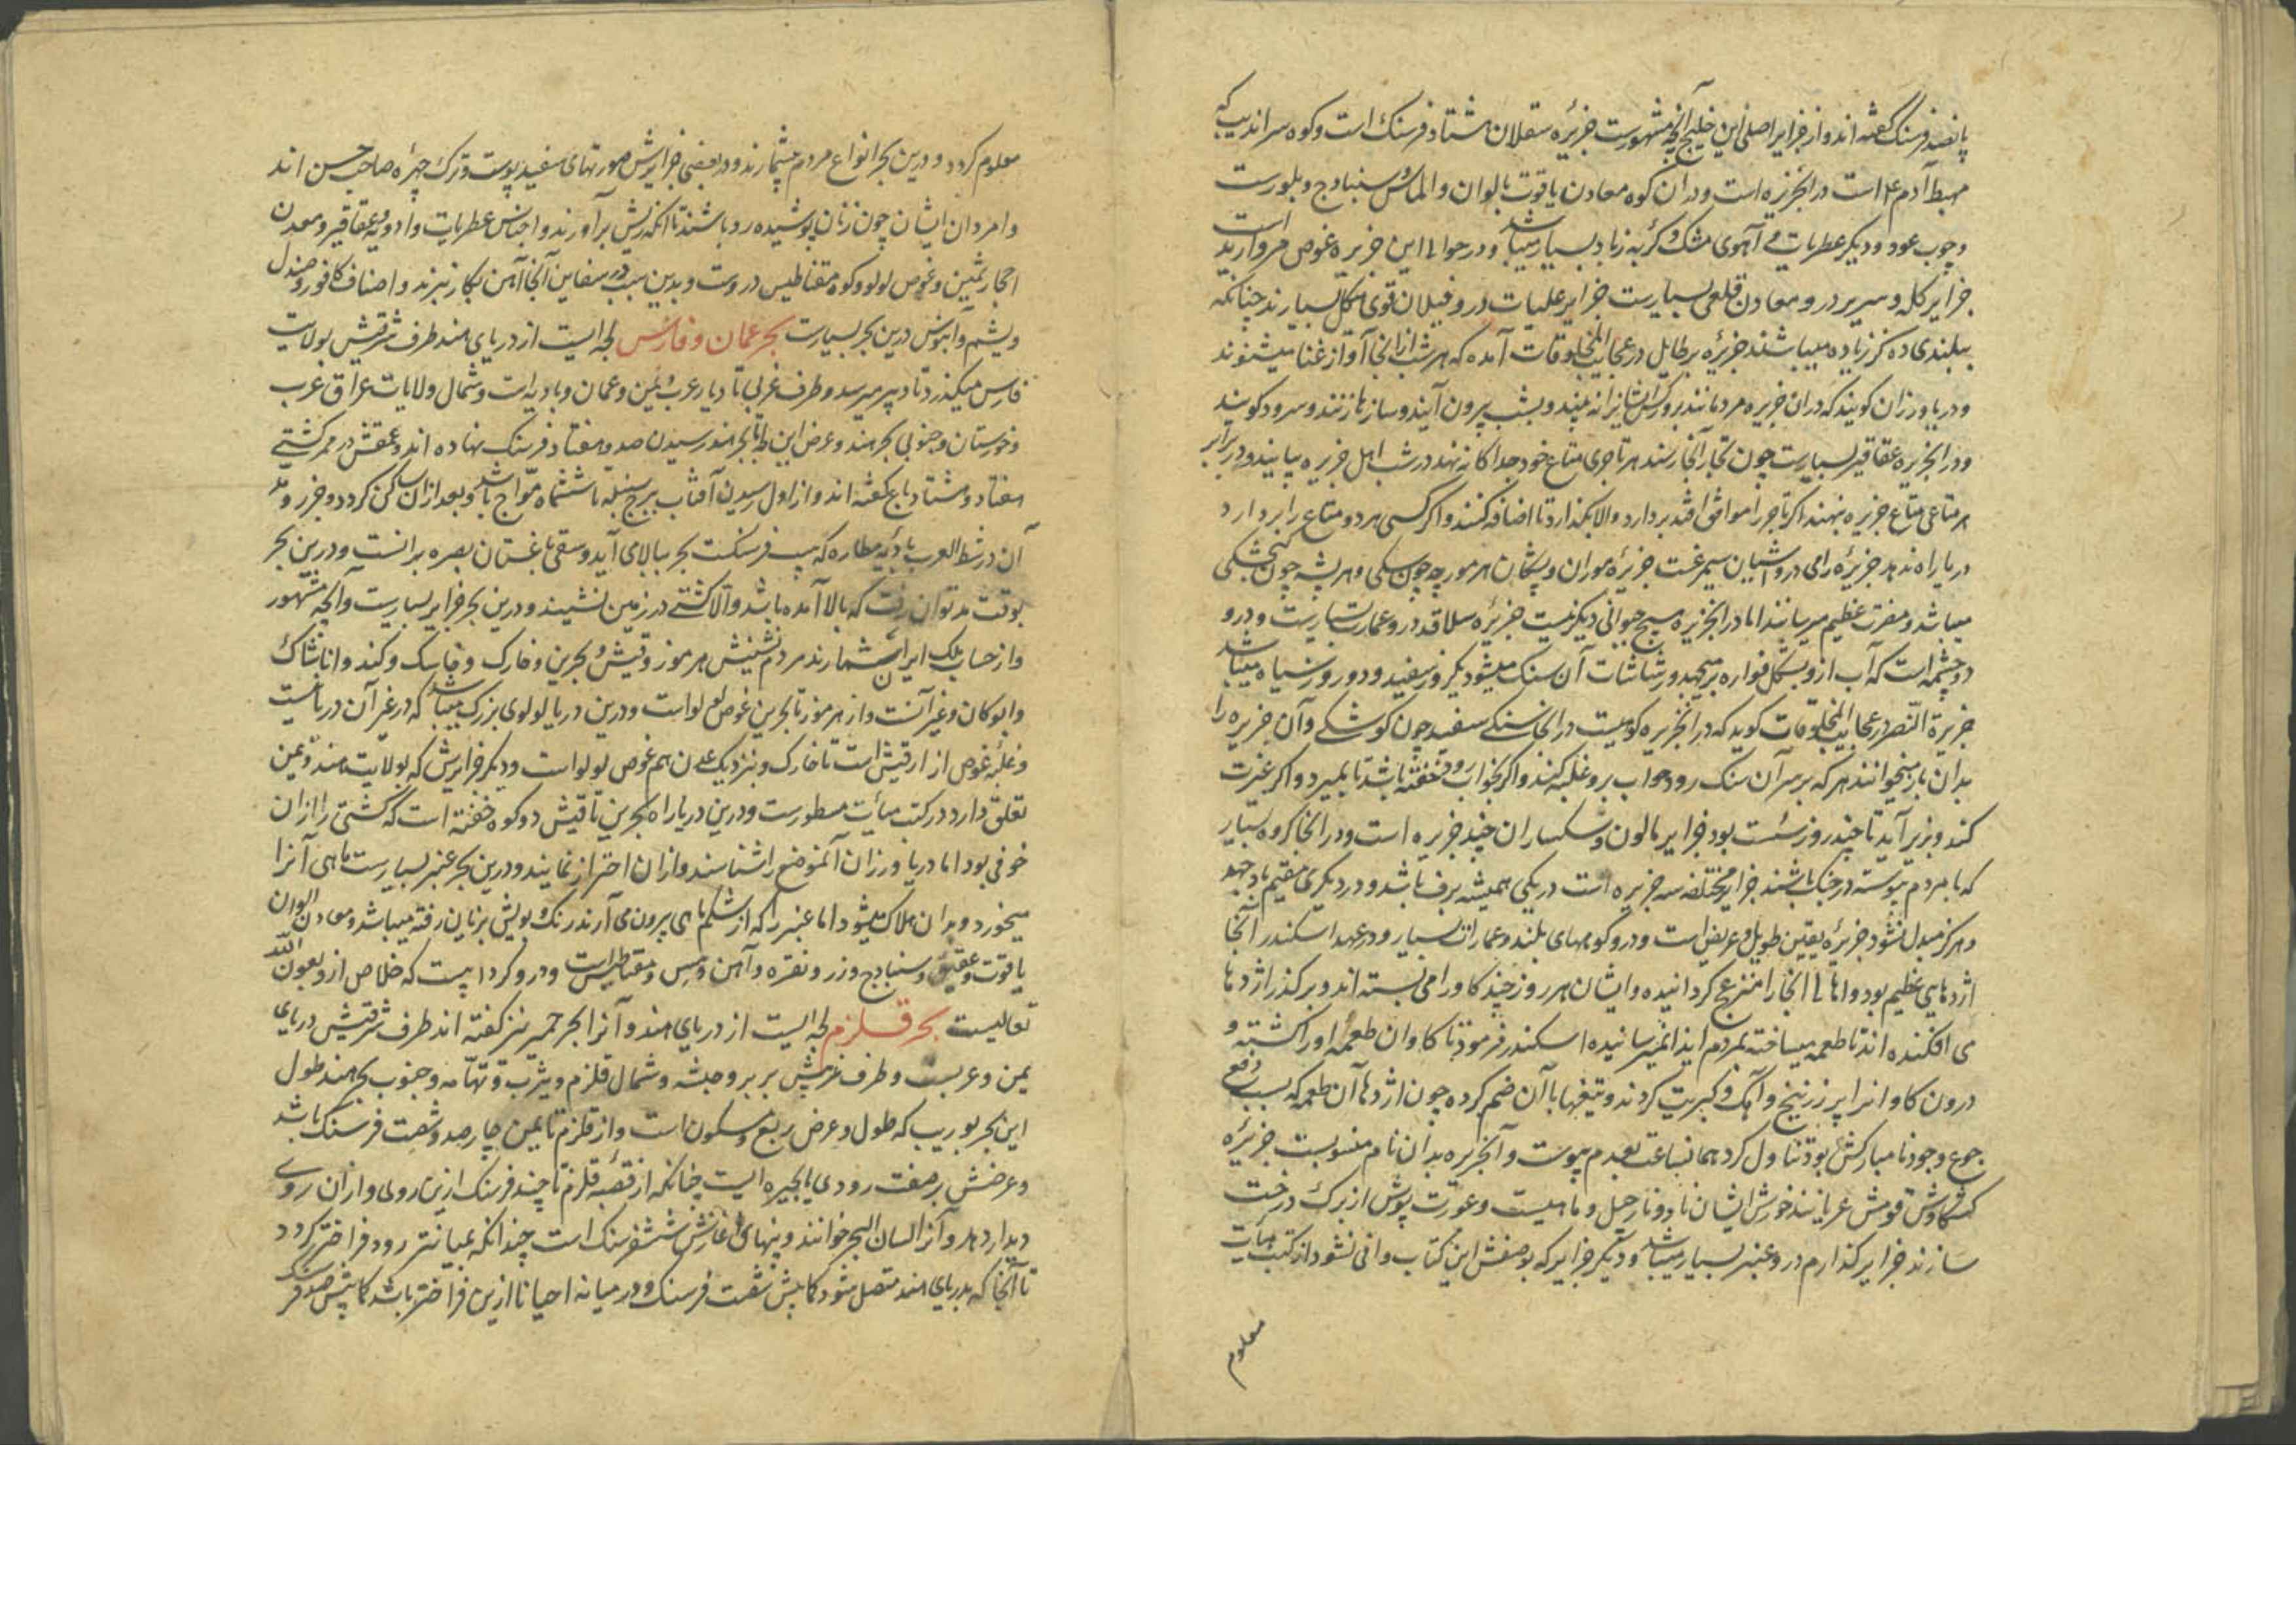 پانصد فرسنگ گفته اند و از جزایر اصلی این خلیج آنچه مشهورست جزیره سقلان هشتاد فرسنک است و کوه سراندیب که
مهبط آدم ع است در انجزیره است و در ان کوه معادن یاقوت بالوان و الماس و سنبادج و بلورست
و چوب عود و دیکر عطریات و آهوی مشک و کربه زباد بسیار میباشد و در حوالی این جزیره غوص مروارید است
جزایر کله و سریر درو معادن قلعی بسیارست جزایر علیات درو فیلان قوی هیکل بسیارند چنانکه
ببلندی ده کز زیاده میباشند جزیره برطایل در عجایب المخلوقات آمده که هر شب از انجا آواز غنا میشنوند
و دریا ورزان کویند که دران جزیره مردمانند بروز کس ایشانرا نه بیند و بشب بیرون آیند و سازها زنند و سرود کویند
و در انجزیره عقاقیر بسیارست چون تجار آنجا رسند هر تاجری متاع خود جداکانه نهد در شب اهل جزیره بیایند و در برابر
هر متاعی متاع جزیره بنهند اکر تاجر را موافق افتد بردارد والا بکذارد تا اضافه کنند و اکر کسی هر دو متاع را بردارد
دریا راه ندهد جزیره رامی درو آشیان سیمرغست جزیره موران و پشکان هر مورچه چون سکی و هر پشه چون کنجشکی
میباشد و مضرت عظیم میرسانند اما در انجزیره هیچ حیوانی دیکر نیست جزیره سلاقه درو عمارت بسیاریست و درو
دو چشمه است که آب ازو بشکل فواره بر میجهد و رشاشات آن سنک میشود یکروز سفید و دو روز سیاه میباشد
جزیرة النصر در عجایب المخلوقات کوید که در انجزیره کوهیست در انجا سنکی سفید چون کوشکی و آن جزیره را
بدان باز میخوانند هر که بر سر آن سنک رود خواب برو غلبه کند و اکر بخواب رود خفته باشد تا بمیرد و اکر غیرت
کند و بزیر آید تا چند روز سست بود جزایر مالون و سکساران چند جزیره است و در انجا کروه بسیار
که با مردم پیوسته در جنک باشند جزایر مختلفه سه جزیره است در یکی همیشه برف باشد و در دیکری مقیم باد جهد
و هرکز مبدل نشود جزیره یقین طویل و عریض است و درو کوههای بلند و عمارات بسیار و در عهد اسکندر آنجا
اژدهایی عظیم بود و اهالی انجا را منزعج کردانیده و ایشان هر روز چند کاو را می بسته اند و بر کذر اژدها
می افکنده اند تا طعمه میساخته بمردم ایذا نمیرسانیده اسکندر فرمود تا کاوان طعمه او را کشته و
درون کاوانرا پر زرنیخ و آهک و کبریت کردند و تیغها با آن ضم کرده چون اژدها آن طعمه که سبب دفع
جوع وجود نا مبارکش بود تناول کرد همانساعت بعدم پیوست و آنجزیره بدان نام منسوبست جزیره
قومش عریانند خورش ایشان نارجیل و ماهیست و عورت پوش از برک درخت
سازند جزایر کذارم درو عنبر بسیار میباشد و دیکر جزایر که بوصفش این کتاب وافی نشود از کتب هیأت
معلوم
معلوم کردد و درین بحر انواع مردم بیشمارند و در بعضی جزایرش صورتهای سفید پوست و ترک چهره صاحب حسن اند
و امردان ایشان چون زنان پوشیده رو باشند تا انکه ریش بر آورند و اجناس عطریات و ادویه و عقاقیر و معدن
احجار ثمین و غوص لولو و کوه مقناطیس دروست و بدین سبب در سفاین آنجا آهن بکار نبرند و اصناف کافور و صندل
و یشم و آبنوس درین بحر بسیارست بحر عمان و فارس لجه ایست از دریای هند طرف شرقیش بولایت
فارس میکذرد تا دیر میرسد و طرف غربی تا دیار عرب و یمن و عمان و بادیه است و شمال ولایات عراق عرب
و خوزستان و جنوبی بحر هند و عرض این لجه تا بحر هند رسیدن صد و هفتاد فرسنک نهاده اند و عمقش در ممر کشتی
هفتاد و هشتاد باع کفته اند و از اول رسیدن آفتاب ببرج سنبله تا ششماه مواج باشد و بعد ازان ساکن کردد و جزر و مد
آن در شط العرب تا دیه مطاره که بیست فرسنکست بحر ببالا می آید و سقی باغستان بصره بر انست و درین بحر
بوقت مد توان رفت که بالا آمده باشد و الا کشتی در زمین نشیند و درین بحر جزایر بسیارست و آنچه مشهور
و از حساب ملک ایران شمارند مردم نشینش هرمز و قیش و بحرین و خارک و خاسک و کند و اناشاک
و ابوکان و غیر آنست و از هرمز تا بحرین غوص لولو است و درین دریا لولوی بزرک میباشد که در غیر آن دریا نیست
و غلبه غوص از از قیش است تا خارک و بنزدیک عدن هم غوص لولو است و دیکر جزایرش که بولایت هند و یمن
تعلق دارد در کتب هیأت مسطورست و درین دریا راه بحرین تا قیش دو کوه خفته است که کشتی را ازان
خوفی بود اما دریا ورزان آنموضع را شناسند و ازان احتراز نمایند و درین بحر عنبر بسیارست ماهی آنرا
میخورد و بدان هلاک میشود اما عنبر که از شکم ماهی بیرون می آرند رنک و بویش بزیان رفته میباشد و معادن الوان
یاقوت و عقیق و سنبادج و زر و نقره و آهن و مس و مقناطیس است و درو کردابیست که خلاص ازو بعون الله
تعالیست بحر قلزم لجه ایست از دریای هند و آنرا بحر حمیر نیز کفته اند طرف شرقیش دریای
یمن و عربست و طرف غربیش بربر و حبشه و شمال قلزم و یثرب و تهامه و جنوب بحر هند طول
این بحر بوریب که طول و عرض ربع مسکون است و از قلزم تا یمن چهار صد و شصت فرسنک باشد
و عرضش بر صفت رودی یا بحیره ایست چنانکه از قصبه قلزم تا چند فرسنک ازین روی و ازان روی
دیدار دهد و آنرا لسان البحر خوانند و پهنای آغازش شش فرسنک است چندانکه بمیانتر رود فراختر کردد
تا آنجا که بدریای هند متصل شود کمابیش شصت فرسنک و در میانه احیانا ازین فراختر باشد کمابیش صد فرسنک